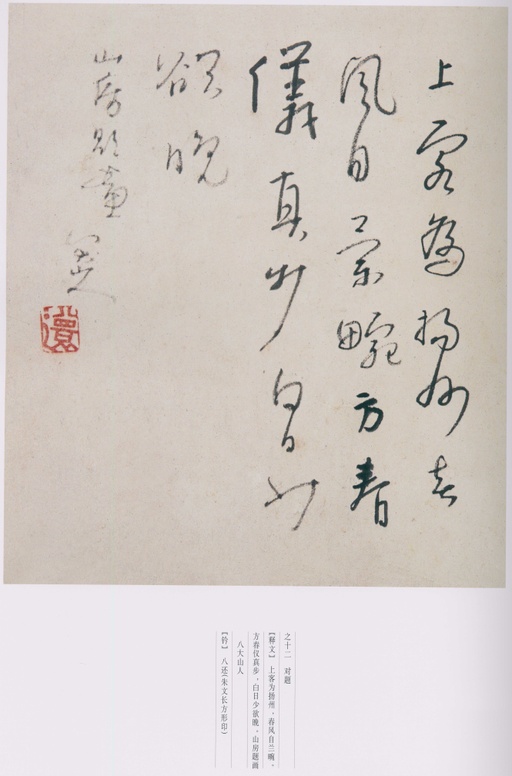 上客為揚州春
風自蘭畹方春
儀真步白日少
欲晚
山房題畫 八大山人
八還
之十二 对题
【释文】上客为扬州，春风自兰畹，
方春仪真步，白日少欲晚。山房题画
八大山人
【钤】八还（朱文长方形印）